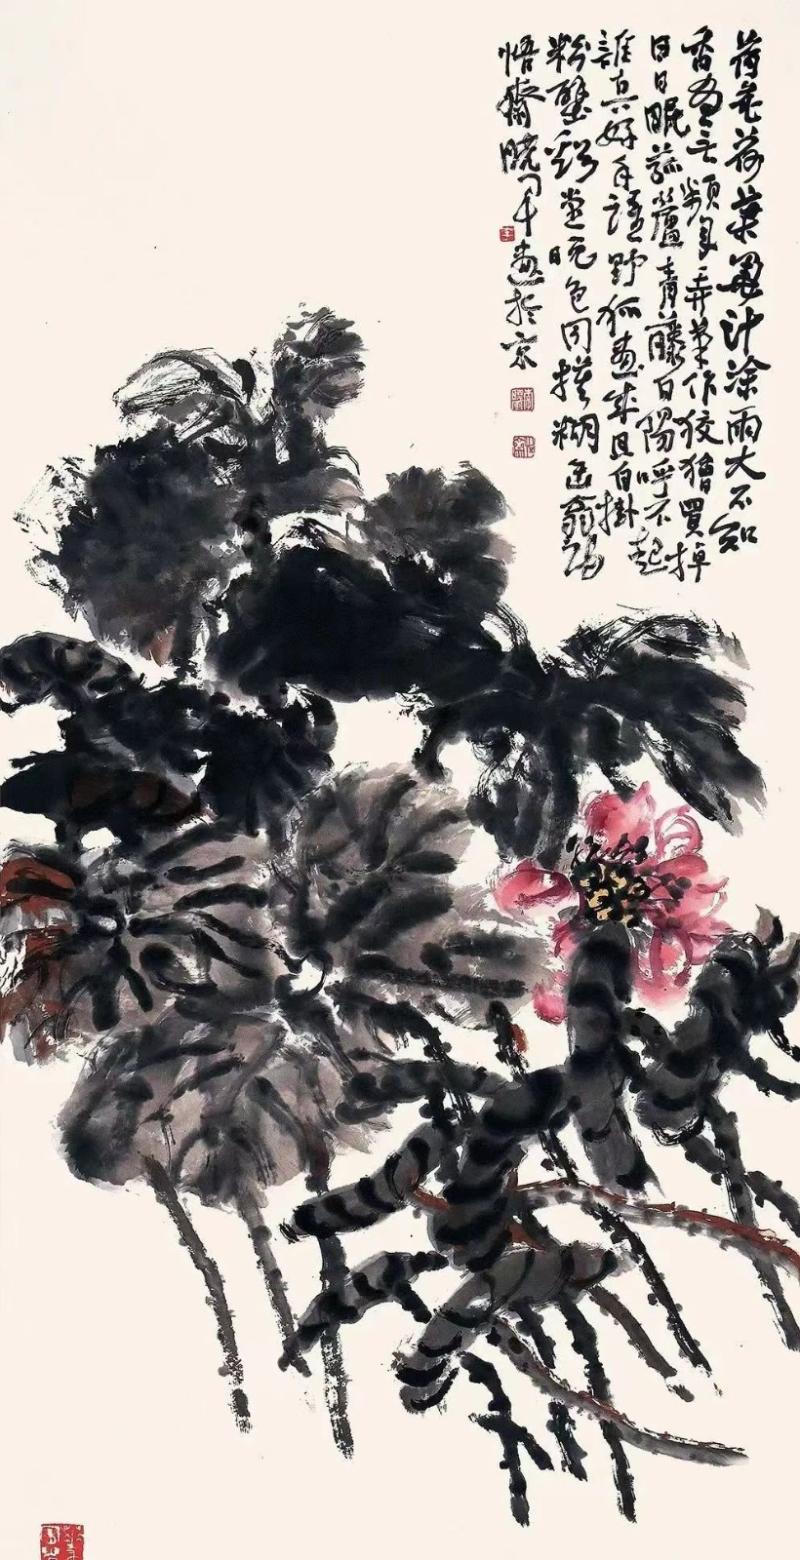 荷花荷葉墨汁塗雨大不知
香有无頻年弄筆作狡獪買棹
日日眠菰蘆青藤白陽呼不起
誰真好手誰野狐畫成且自掛
粉壁谿堂晚色同模糊缶翁詩
悟齋曉軍畫於京